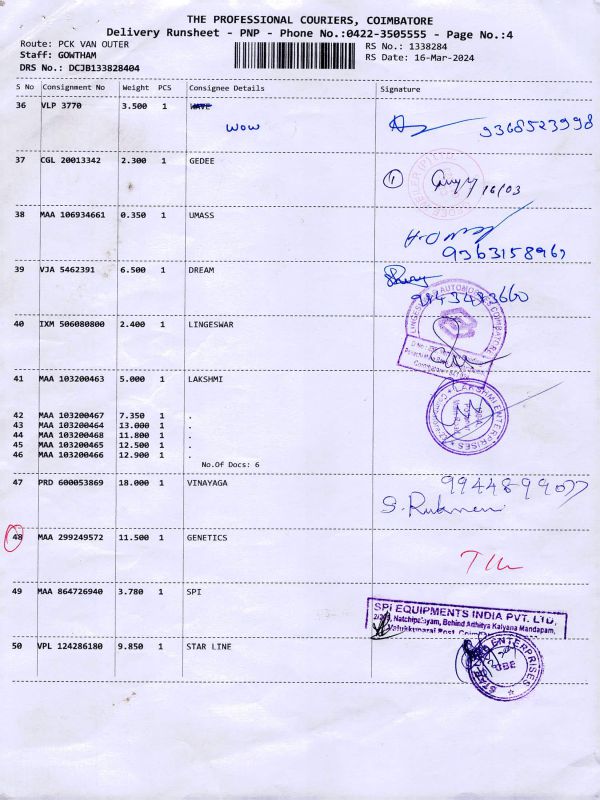 THE PROFESSIONAL COURIERS, COIMBATORE
Delivery Runsheet - PNP - Phone No.:0422-3505555 - Page No.:4
Route: PCK VAN OUTER RS No.: 1338284
Staff: GOWTHAM RS Date: 16-Mar-2024
DRS No.: DCJB133828404
S No Consignment No Weight PCS Consignee Details Signature
36 VLP 3770 3.500 1
WOW 9368523998
37 CGL 20013342 2.300 1 GEDEE
1 16/03
38 MAA 106934661 0.350 1 UMASS
39 VJA 5462391 6.500 1 DREAM
40 IXM 506080800 2.400 1 LINGESWAR
41 MAA 103200463 5.000 1 LAKSHMI
LAKSHMI ENTERPRISES
42 MAA 103200467 7.350 1 .
43 MAA 103200464 13.000 1 .
44 MAA 103200468 11.800 1 .
45 MAA 103200465 12.500 1 .
46 MAA 103200466 12.900 1 .
No.Of Docs: 6
47 PRD 600053869 18.000 1 VINAYAGA
48 MAA 299249572 11.500 1 GENETICS
49 MAA 864726940 3.780 1 SPI
SPI EQUIPMENTS INDIA PVT. LTD,
Natchipalayam, Behind Adhitya Kalyana Mandapam,
50 VPL 124286180 9.850 1 STAR LINE
ENTERPRISES
CBE